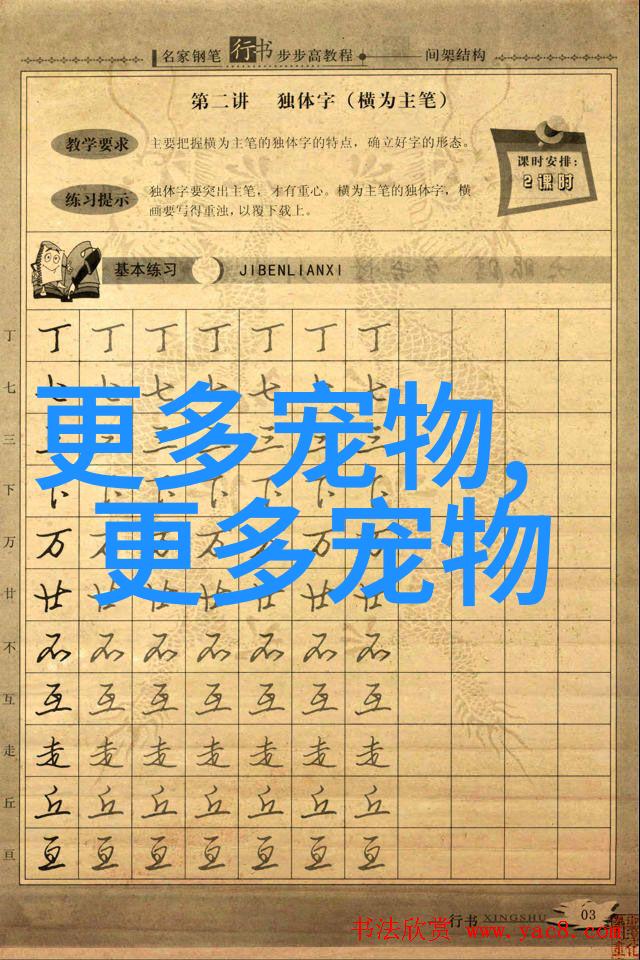 名家钢笔 行书 步步高教程 间架结构
第二讲 独体字（横为主笔）
教学要求 主要把握横为主笔的独体字的特点，确立好字的形态。
练习提示 独体字要突出主笔，才有重心。横为主笔的独体字，横
画要写得重浊，以覆下载上。
课时安排：
2课时
基本练习 JIBENLIANXI
丁 丁 丁 丁 丁 丁 丁 丁
七 七 七 七 七 七 七 七
更多宠物,
三 三 三 三 三 三 三
下 下 下 下 下 下 下 下
更多宠物
万 万 万 万 万 万 万 万
廿 廿 廿 廿 廿 廿 廿 廿
不 不 不 不 不 不 不 不
互 互 互 互 互 互 互 互
走 走 走 走 走 走 走 走
丘 丘 丘 丘 丘 丘 丘 丘
亘 亘 亘 亘 亘 亘 亘 亘
行书 XINGSHU 03
书法欣赏 www.yac8.com